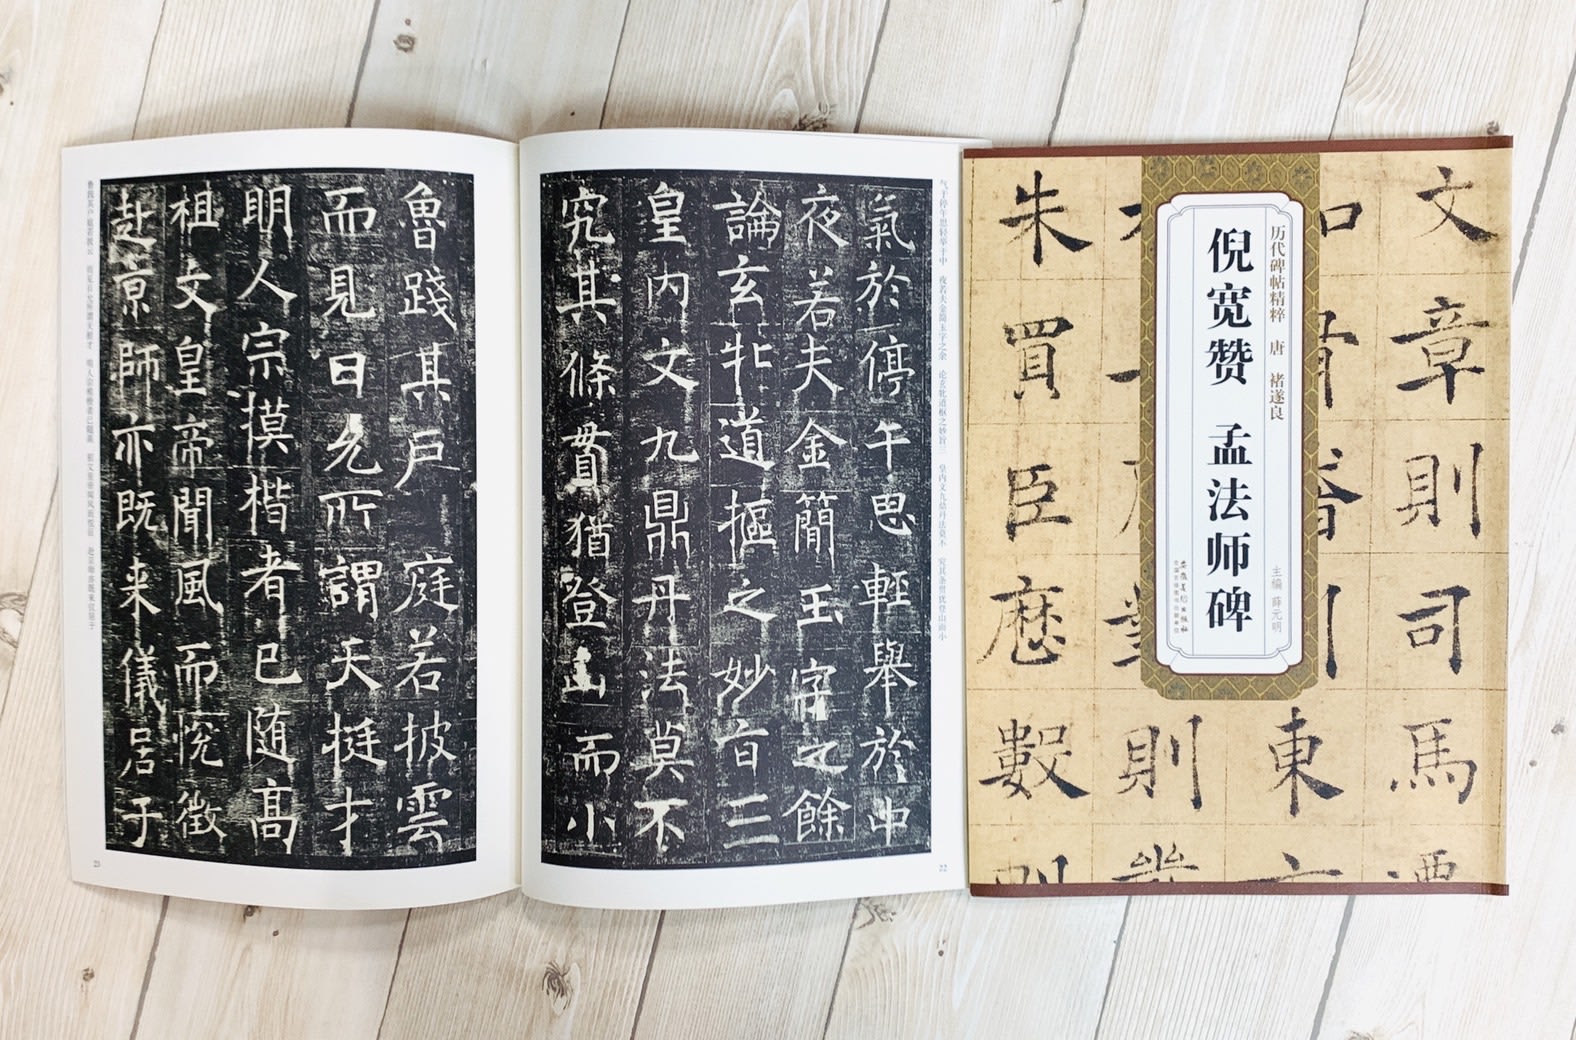 气于停午思轻举于中　夜若夫金简玉字之余　论玄牝道枢之妙旨三　皇内文九鼎丹法莫不　究其条贯犹登山而小
氣於停午思輕舉於中
夜若夫金簡玉字之餘
論玄牝道樞之妙旨三
皇内文九鼎丹法莫不
究其條貫猶登山而小
22
魯踐其戸庭若披雲
而見日允所謂天挺才
明人宗摸楷者已随高
祖文皇帝聞風而悅徵
赴京師亦既来儀居于
鲁践其户庭若披云　而见日允所谓天挺才　明人宗模楷者已随高　祖文皇帝闻风而悦征　赴京师亦既来仪居于
23
文章則司馬
東
則
朱買臣歷數
历代碑帖精粹　唐　褚遂良
主编　薛元明
倪宽赞　孟法师碑
安徽美术出版社
全国百佳图书出版单位